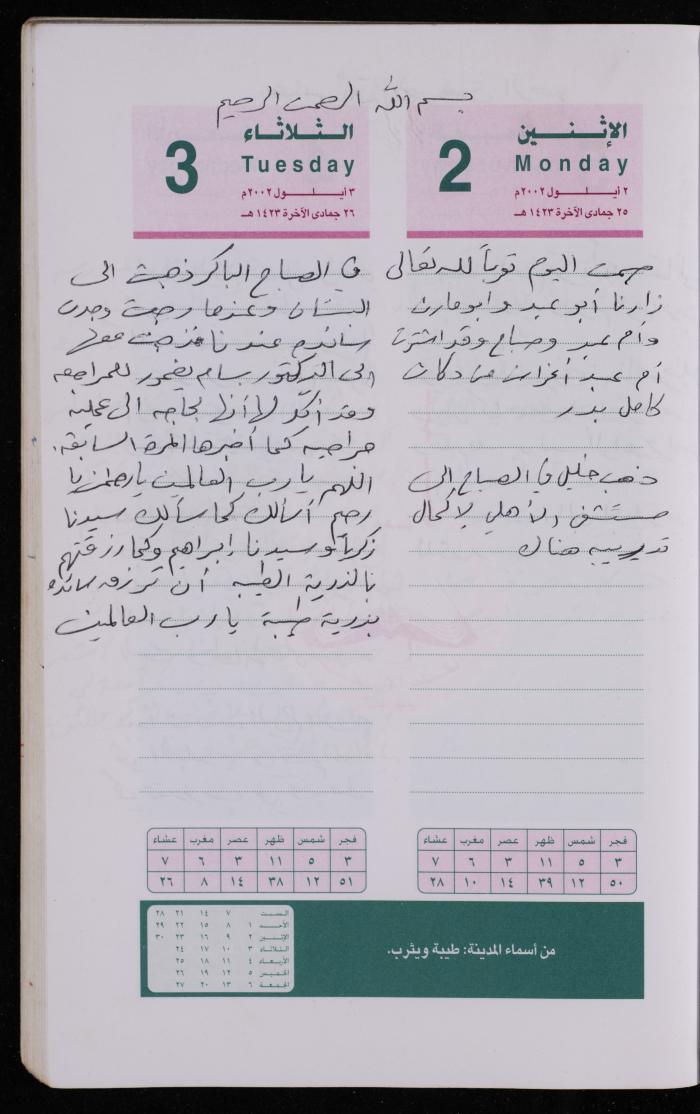 بسم الله الرحمن الرحيم
الإثنين
Monday
2
٢ أيلول ٢٠٠٢م
٢٥ جمادى الآخرة ١٤٢٣ هـ
صمت اليوم قرباً لله تعالى
زارنا أبو عبد وابو مازن
وأم عبد وصباح وقد اشترت
أم عبد أغراض من دكان
كامل بدر
ذهب خليل في الصباح إلى
مستشفى الأهلي لإكمال
تدريبه هناك
الثلاثاء
Tuesday
3
٣ أيلول ٢٠٠٢م
٢٦ جمادى الآخرة ١٤٢٣ هـ
في الصباح الباكر ذهبت الى
البستان وعندما رجعت وجدت
سائده عندنا فذهبت معها
الى الدكتور بسام يغمور للمراجعه
وقد أكد لها أنها بحاجه الى عملية
جراحيه كما أخبرها المرة السابقه.
اللهم يا رب العالمين يا رحمن يا
رحيم أسألك كما سألك سيدنا
زكريا وسيدنا إبراهيم وكما رزقتهم
بالذرية الطيبه أن ترزق سائده
بذرية طيبة يا رب العالمين
فجر شمس ظهر عصر مغرب عشاء
٣ ٥ ١١ ٣ ٦ ٧
٥٠ ١٢ ٣٩ ١٤ ١٠ ٢٨
فجر شمس ظهر عصر مغرب عشاء
٣ ٥ ١١ ٣ ٦ ٧
٥١ ١٢ ٣٨ ١٤ ٨ ٢٦
من أسماء المدينة: طيبة ويثرب.
السبت ٧ ١٤ ٢١ ٢٨
الأحد ١ ٨ ١٥ ٢٢ ٢٩
الإثنين ٢ ٩ ١٦ ٢٣ ٣٠
الثلاثاء ٣ ١٠ ١٧ ٢٤
الأربعاء ٤ ١١ ١٨ ٢٥
الخميس ٥ ١٢ ١٩ ٢٦
الجمعة ٦ ١٣ ٢٠ ٢٧